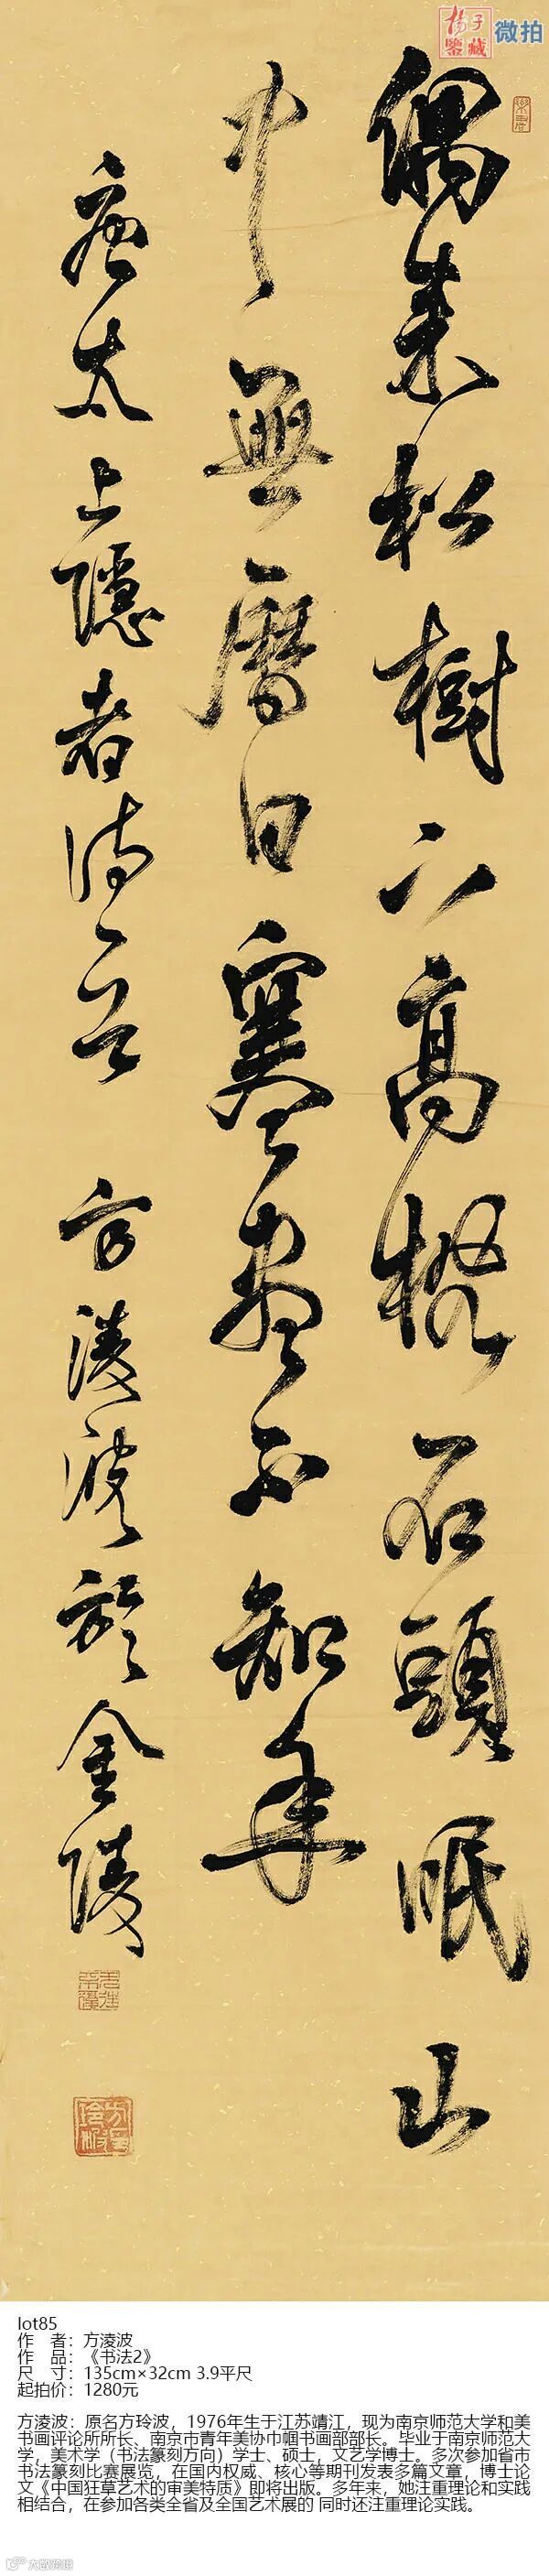 扬子鉴藏 微拍
偶来松树下高枕石头眠山
中无曆日寒尽不知年
唐太上隐者诗一首 方淩波於金陵
lot85
作 者：方淩波
作 品：《书法2》
尺 寸：135cm×32cm 3.9平尺
起拍价：1280元
方淩波：原名方玲波，1976年生于江苏靖江，现为南京师范大学和美
书画评论所所长、南京市青年美协巾帼书画部部长。毕业于南京师范大
学，美术学（书法篆刻方向）学士、硕士，文艺学博士。多次参加省市
书法篆刻比赛展览，在国内权威、核心等期刊发表多篇文章，博士论
文《中国狂草艺术的审美特质》即将出版。多年来，她注重理论和实践
相结合，在参加各类全省及全国艺术展的 同时还注重理论实践。